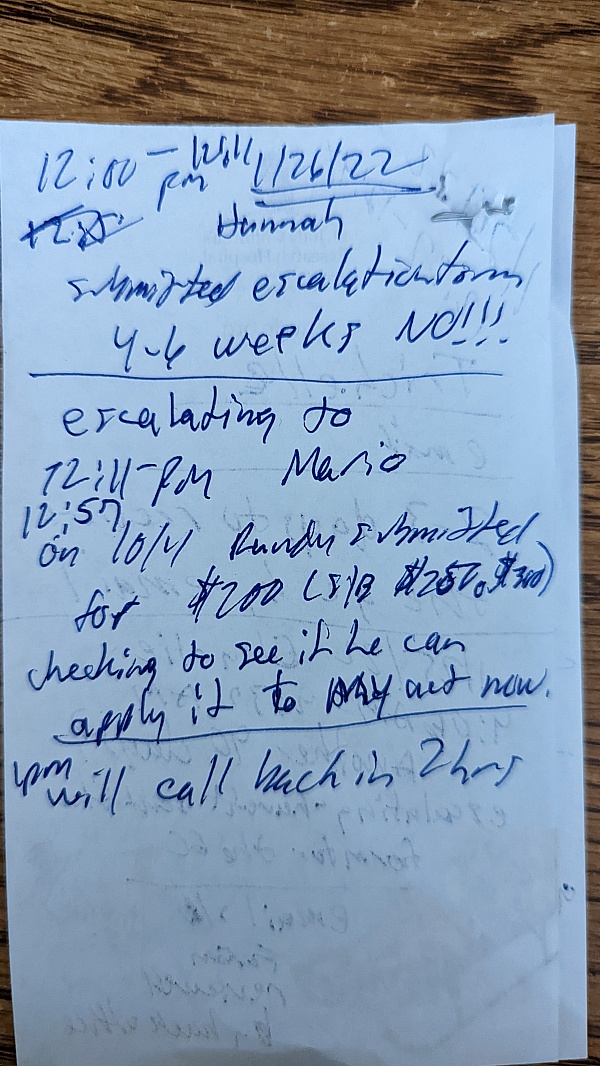 12:00 - 12:11 1/26/22
pm
Hannah
submitted escalation form
4-6 weeks NO!!!
escalating to
12:11-pm Mario
12:57
on 10/4 Randy submitted
for $200 (s/B $250. $300)
checking to see if he can
apply it to my act now.
will call back in 2 hrs